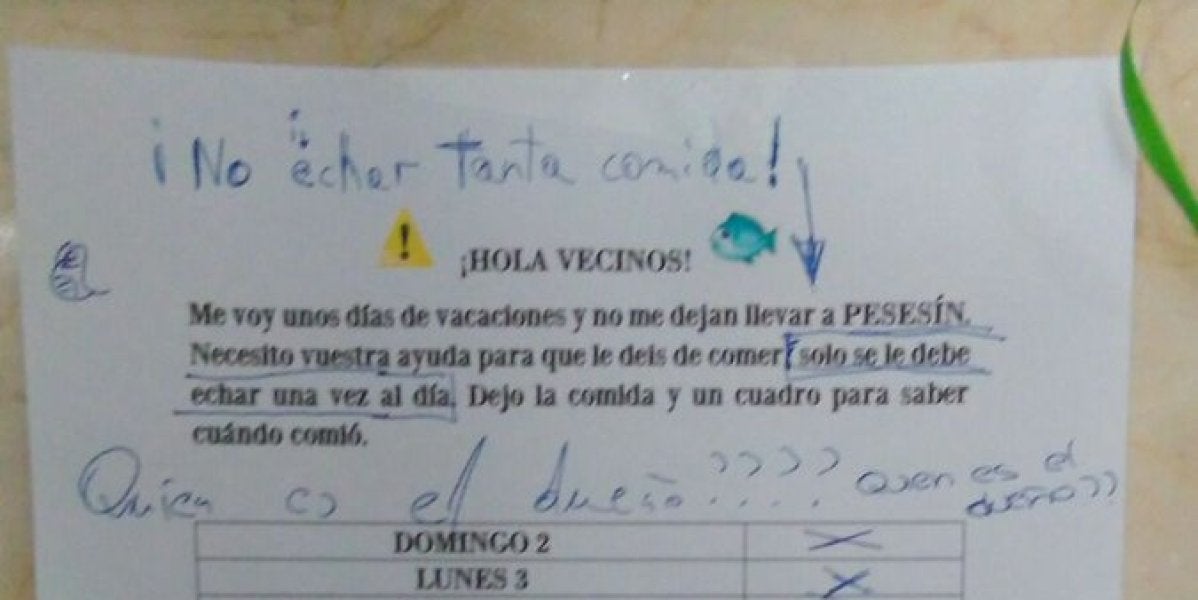 ¡No echar tanta comida!
¡HOLA VECINOS!
Me voy unos días de vacaciones y no me dejan llevar a PESESÍN.
Necesito vuestra ayuda para que le deis de comer, solo se le debe
echar una vez al día. Dejo la comida y un cuadro para saber
cuándo comió.
Quien es el dueño????
Quen es el
dueño??
DOMINGO 2 X
LUNES 3 X